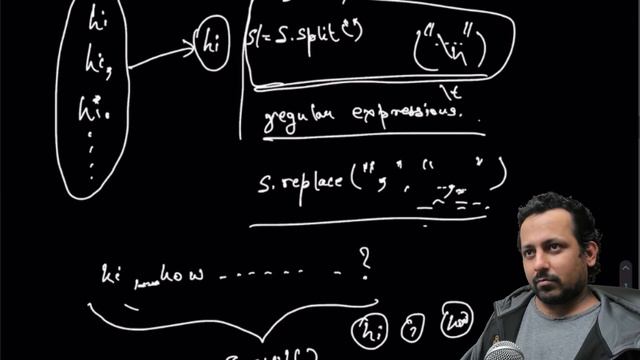 hi
hi,
hi.
hi
S1 = S.split(" ")
("\n")
\t
regular expressions.
S.replace(",", " ")
hi how - - - - - - - ?
hi , how